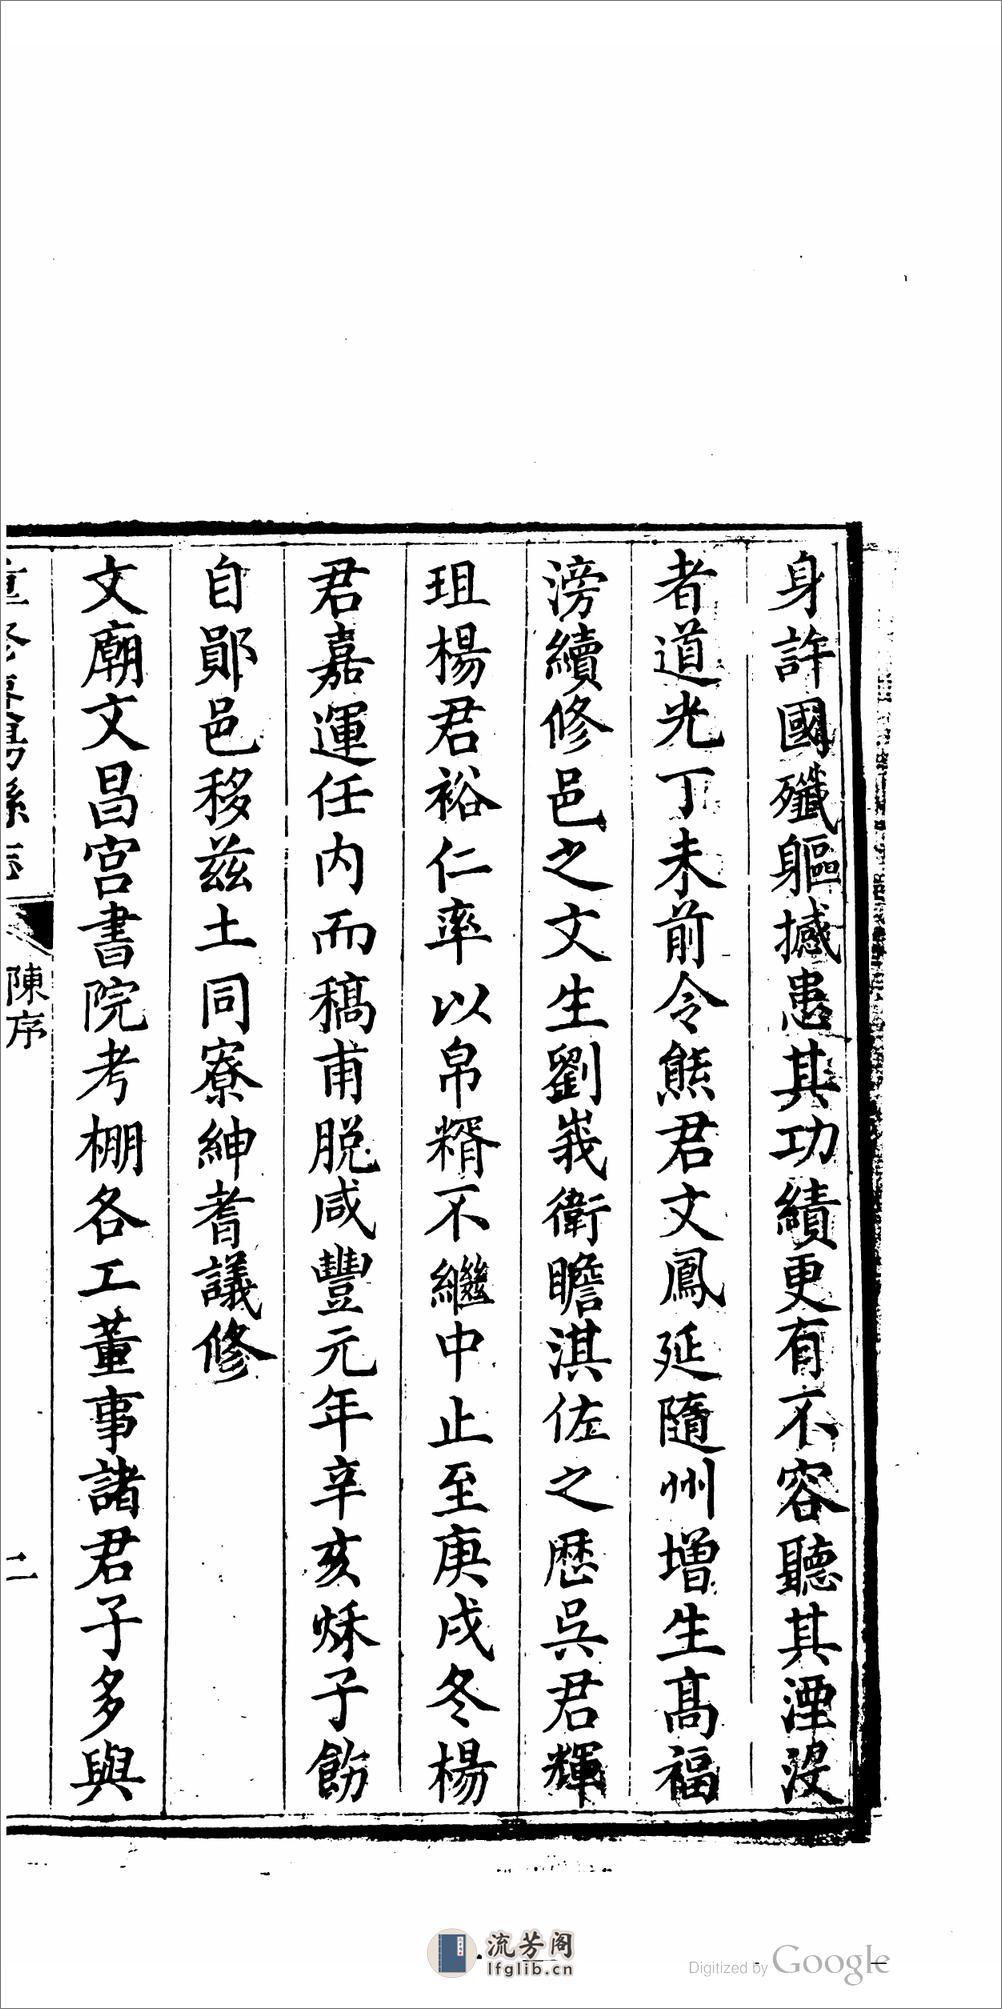 身許國殲軀撼患其功績更有不容聽其湮沒
者道光丁未前令熊君文鳳延隨州增生高福
滂續修邑之文生劉峩衛瞻淇佐之歷吳君輝
珇楊君裕仁率以帛糈不繼中止至庚戌冬楊
君嘉運任内而稿甫脫咸豐元年辛亥烁子飭
自鄖邑移茲土同寮紳耆議修
文廟文昌宮書院考棚各工董事諸君子多與
陳序
二
流芳阁
lfglib.cn
Digitized by Google